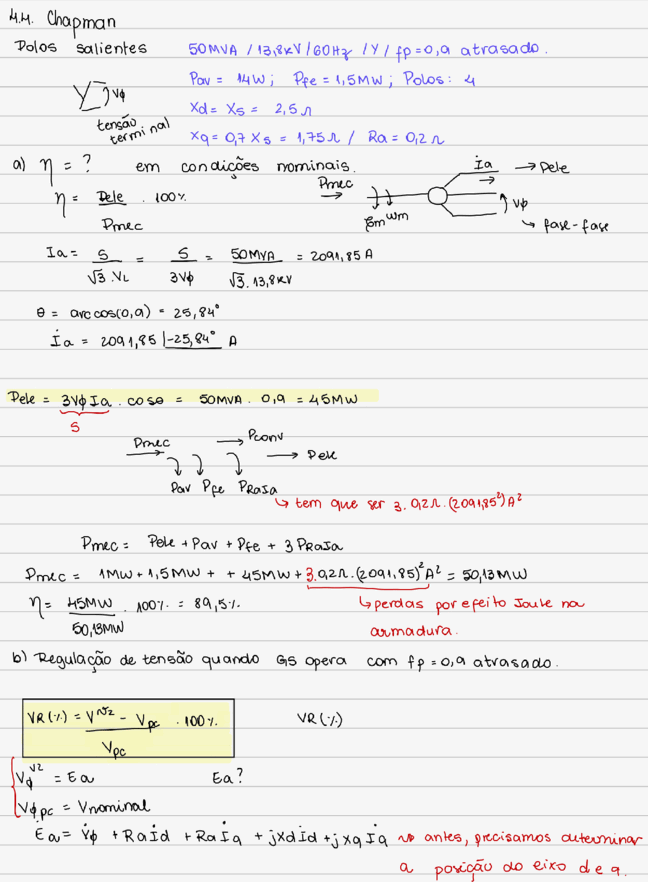 4.4. Chapman
Polos salientes 50MVA / 13,8kV / 60Hz / Y / fp = 0,9 atrasado.
Pav = 14W ; Pfe = 1,5MW ; Polos: 4
Vφ
tensão terminal
Xd = Xs = 2,5Ω
Xq = 0,7 Xs = 1,75Ω / Ra = 0,2Ω
a) η = ? em condições nominais.
η = Pele / Pmec . 100%
Pmec → İa → Pele
ζm ωm Vφ
↳ fase-fase
Ia = S / √3 . VL = S / 3Vφ = 50MVA / √3 . 13,8kV = 2091,85 A
θ = arccos(0,9) = 25,84°
İa = 2091,85 |-25,84° A
Pele = 3VφIa . cosθ = 50MVA . 0,9 = 45MW
S
Pmec → Pconv → Pele
Pav Pfe PRaIa
↳ tem que ser 3. 0,2Ω. (2091,85²)A²
Pmec = Pele + Pav + Pfe + 3 PRaIa
Pmec = 1MW + 1,5MW + + 45MW + 3.0,2Ω.(2091,85)²A² = 50,13MW
η = 45MW / 50,13MW . 100% = 89,5%
↳ perdas por efeito Joule na armadura.
b) Regulação de tensão quando GS opera com fp = 0,9 atrasado.
VR(%) = V^vz - Vpc / Vpc . 100% VR(%)
Vφ^vz = Ea Ea?
Vφpc = Vnominal
Ėa = V̇φ + Raİd + Raİq + jXdİd + jXqİq → antes, precisamos determinar
a posição do eixo de q.